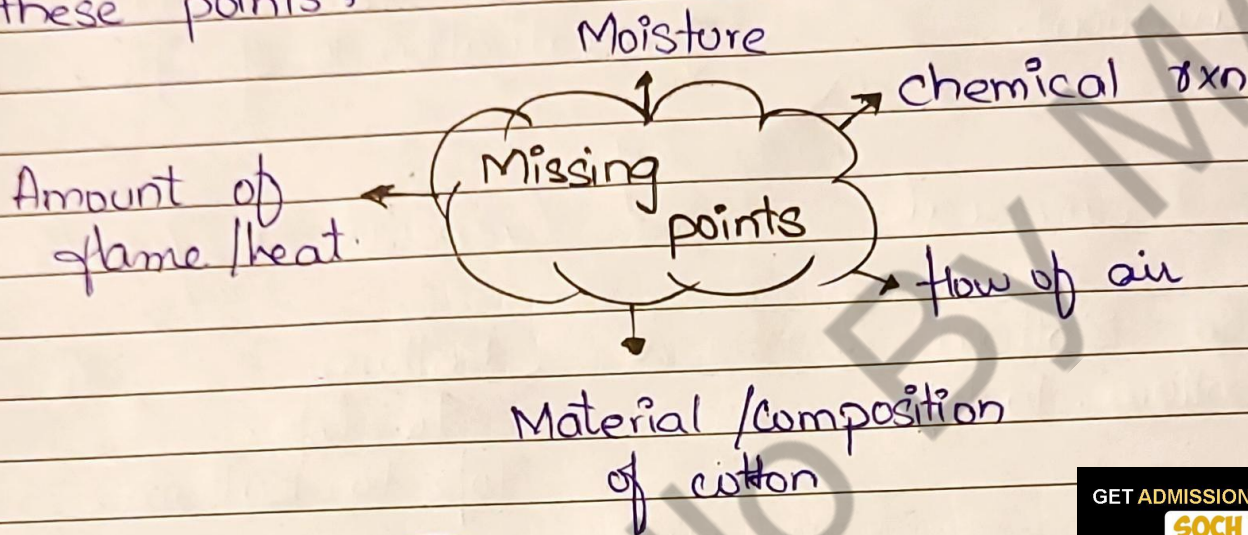 these points.
Moisture
chemical rxn
Missing
points
Amount of
flame/heat.
flow of air
Material/composition
of cotton
By M
GET ADMISSION
SOCH